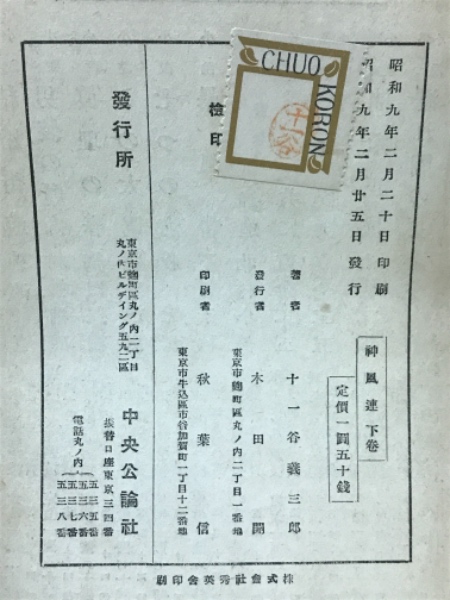 昭和九年二月二十日印刷
昭和九年二月廿五日發行
神風連 下卷
定價一圓五十錢
著者 十一谷義三郎
東京市麴町區丸ノ內二丁目一番地
發行者 木田開
東京市牛込區市谷加賀町一丁目十二番地
印刷者 秋葉信
CHUO KORON
十一谷
檢印
發行所
東京市麴町區丸ノ內二丁目
丸ノ內ビルデイング五九二區
中央公論社
振替口座東京三四番
電話丸ノ內
五三五番
五三六番
五三七番
五三八番
株式會社秀英舍印刷